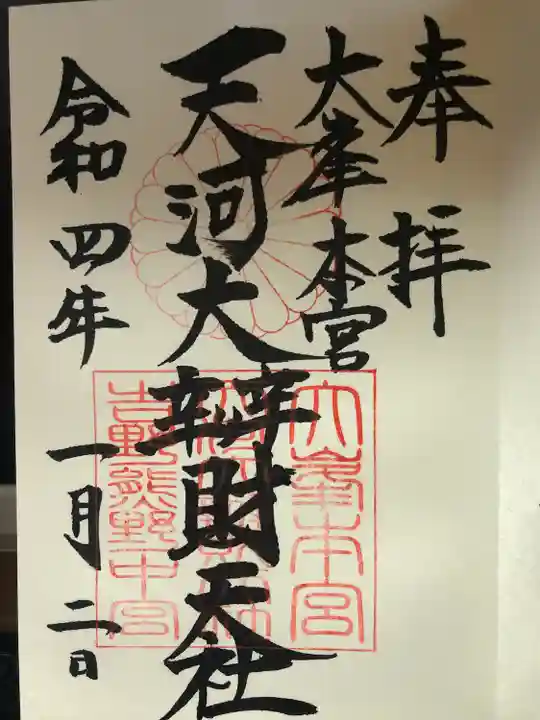 奉拝
大峯本宮
天河大辨財天社
令和四年 一月二日
大峯本宮
吉野熊野中宮